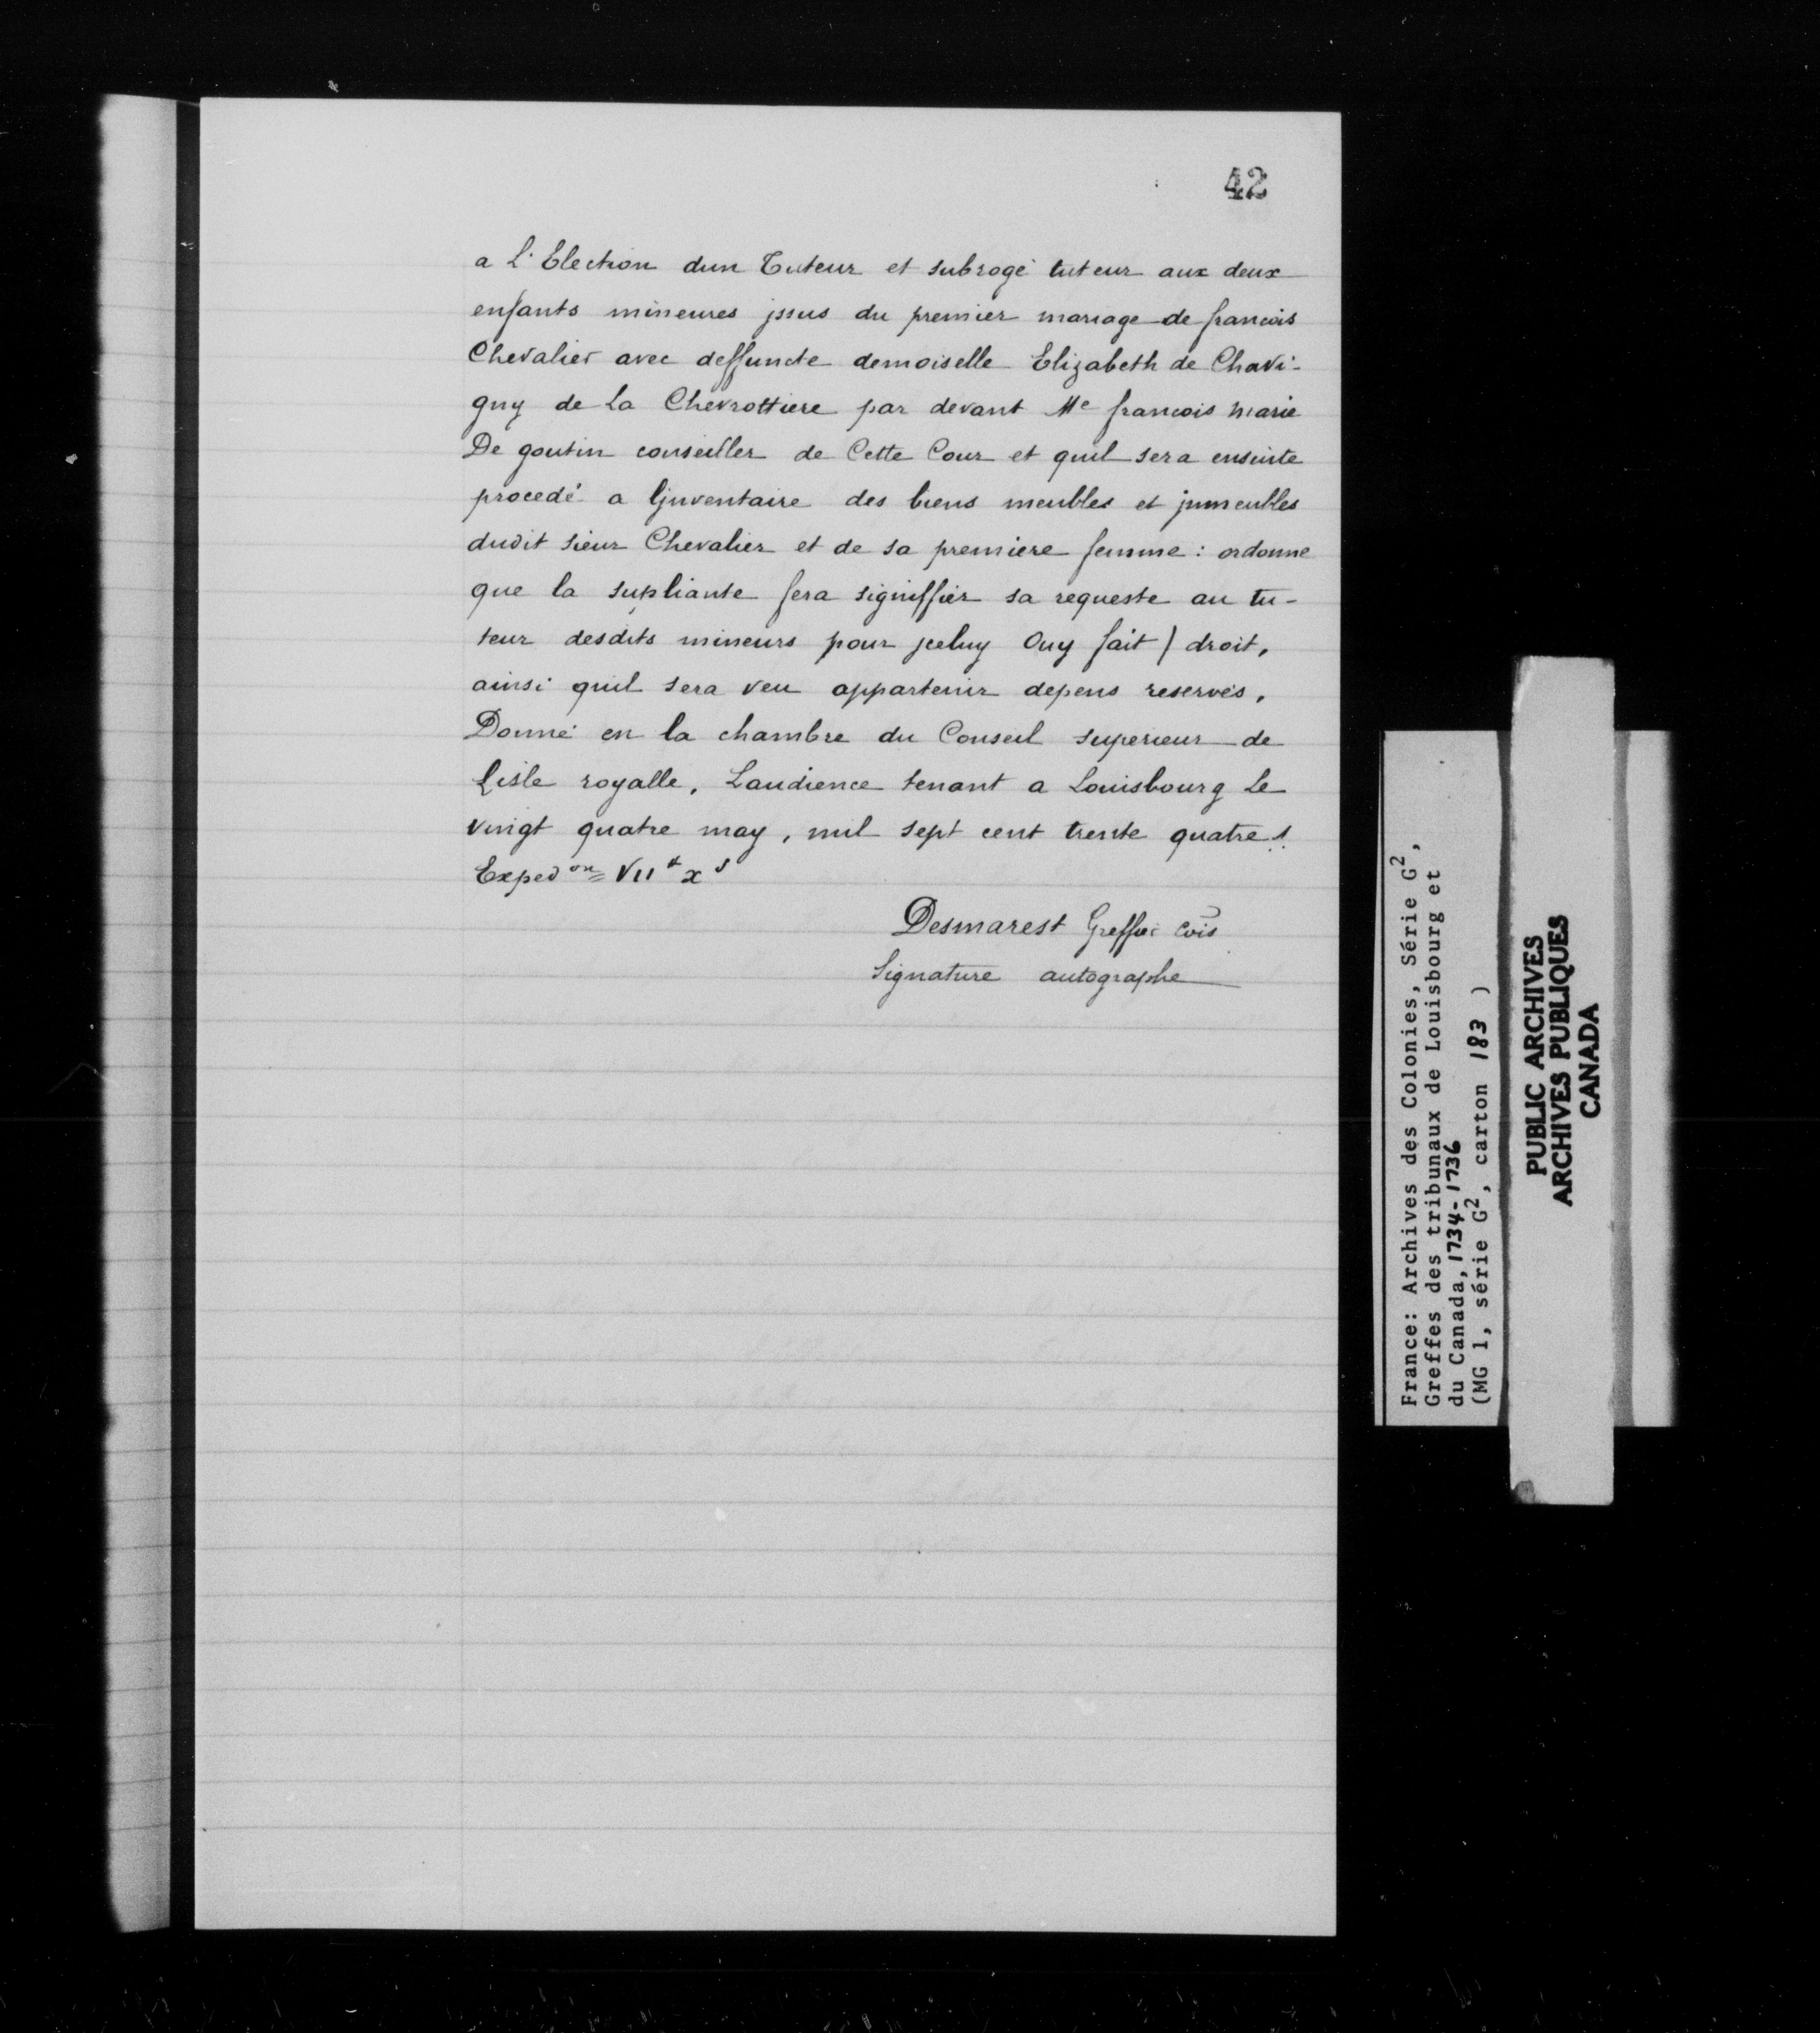 42
a L'Election dun Tuteur et subrogé tuteur aux deux
enfants mineures jssus du premier mariage de francois
Chevalier avec deffuncte demoiselle Elizabeth de Chavi-
gny de La Chevrottiere par devant Me francois marie
De goutin conseiller de Cette Cour et quil sera ensuite
procedé a ljnventaire des biens meubles et jmmeubles
dudit sieur Chevalier et de sa premiere femme : ordonne
que la supliante fera signiffier sa requeste au tu-
teur desdits mineurs pour jceluy Ouy fait / droit,
ainsi quil sera veu appartenir depens reservés,
Donné en la chambre du Conseil superieur de
Lisle royalle, Laudience tenant a Louisbourg Le
vingt quatre may, mil sept cent trente quatre ./.
Exped on = VII # x s
Desmarest Greffier
Signature autographe
France: Archives des Colonies, Série G2,
Greffes des tribunaux de Louisbourg et
du Canada, 1734-1736
(MG 1, série G2, carton 183 )
PUBLIC ARCHIVES
ARCHIVES PUBLIQUES
CANADA